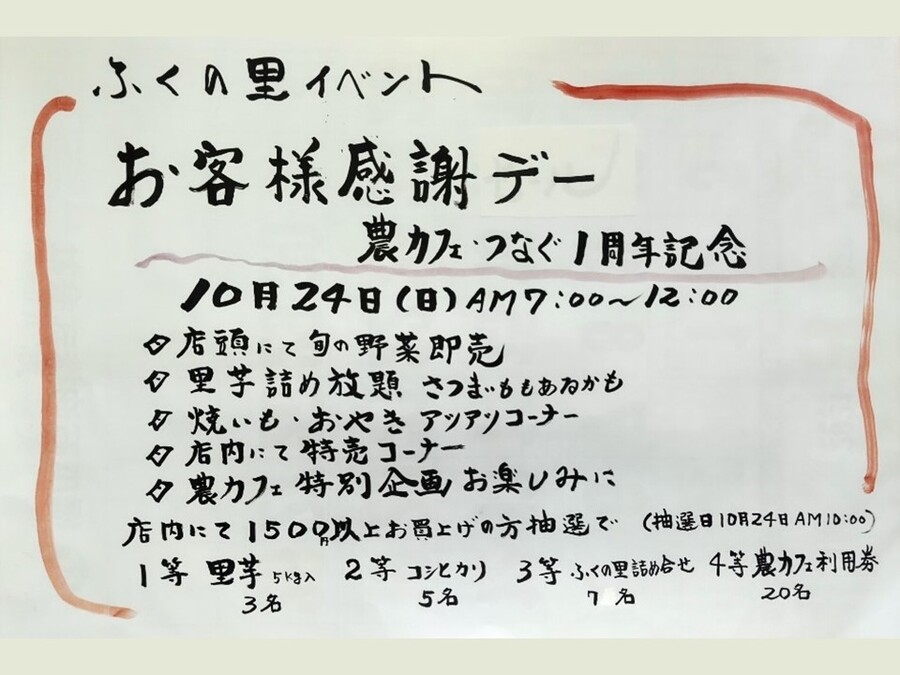 ふくの里イベント
お客様感謝デー
農カフェ・つなぐ1周年記念
10月24日(日)AM7:00~12:00
店頭にて旬の野菜即売
里芋詰め放題 さつまいももあるかも
焼いも・おやきアツアツコーナー
店内にて特売コーナー
農カフェ特別企画お楽しみに
店内にて1500円以上お買上げの方抽選で (抽選日10月24日AM10:00)
1等 里芋5kg入 2等 コシヒカリ 3等 ふくの里詰め合せ 4等農カフェ利用券
3名 5名 7名 20名